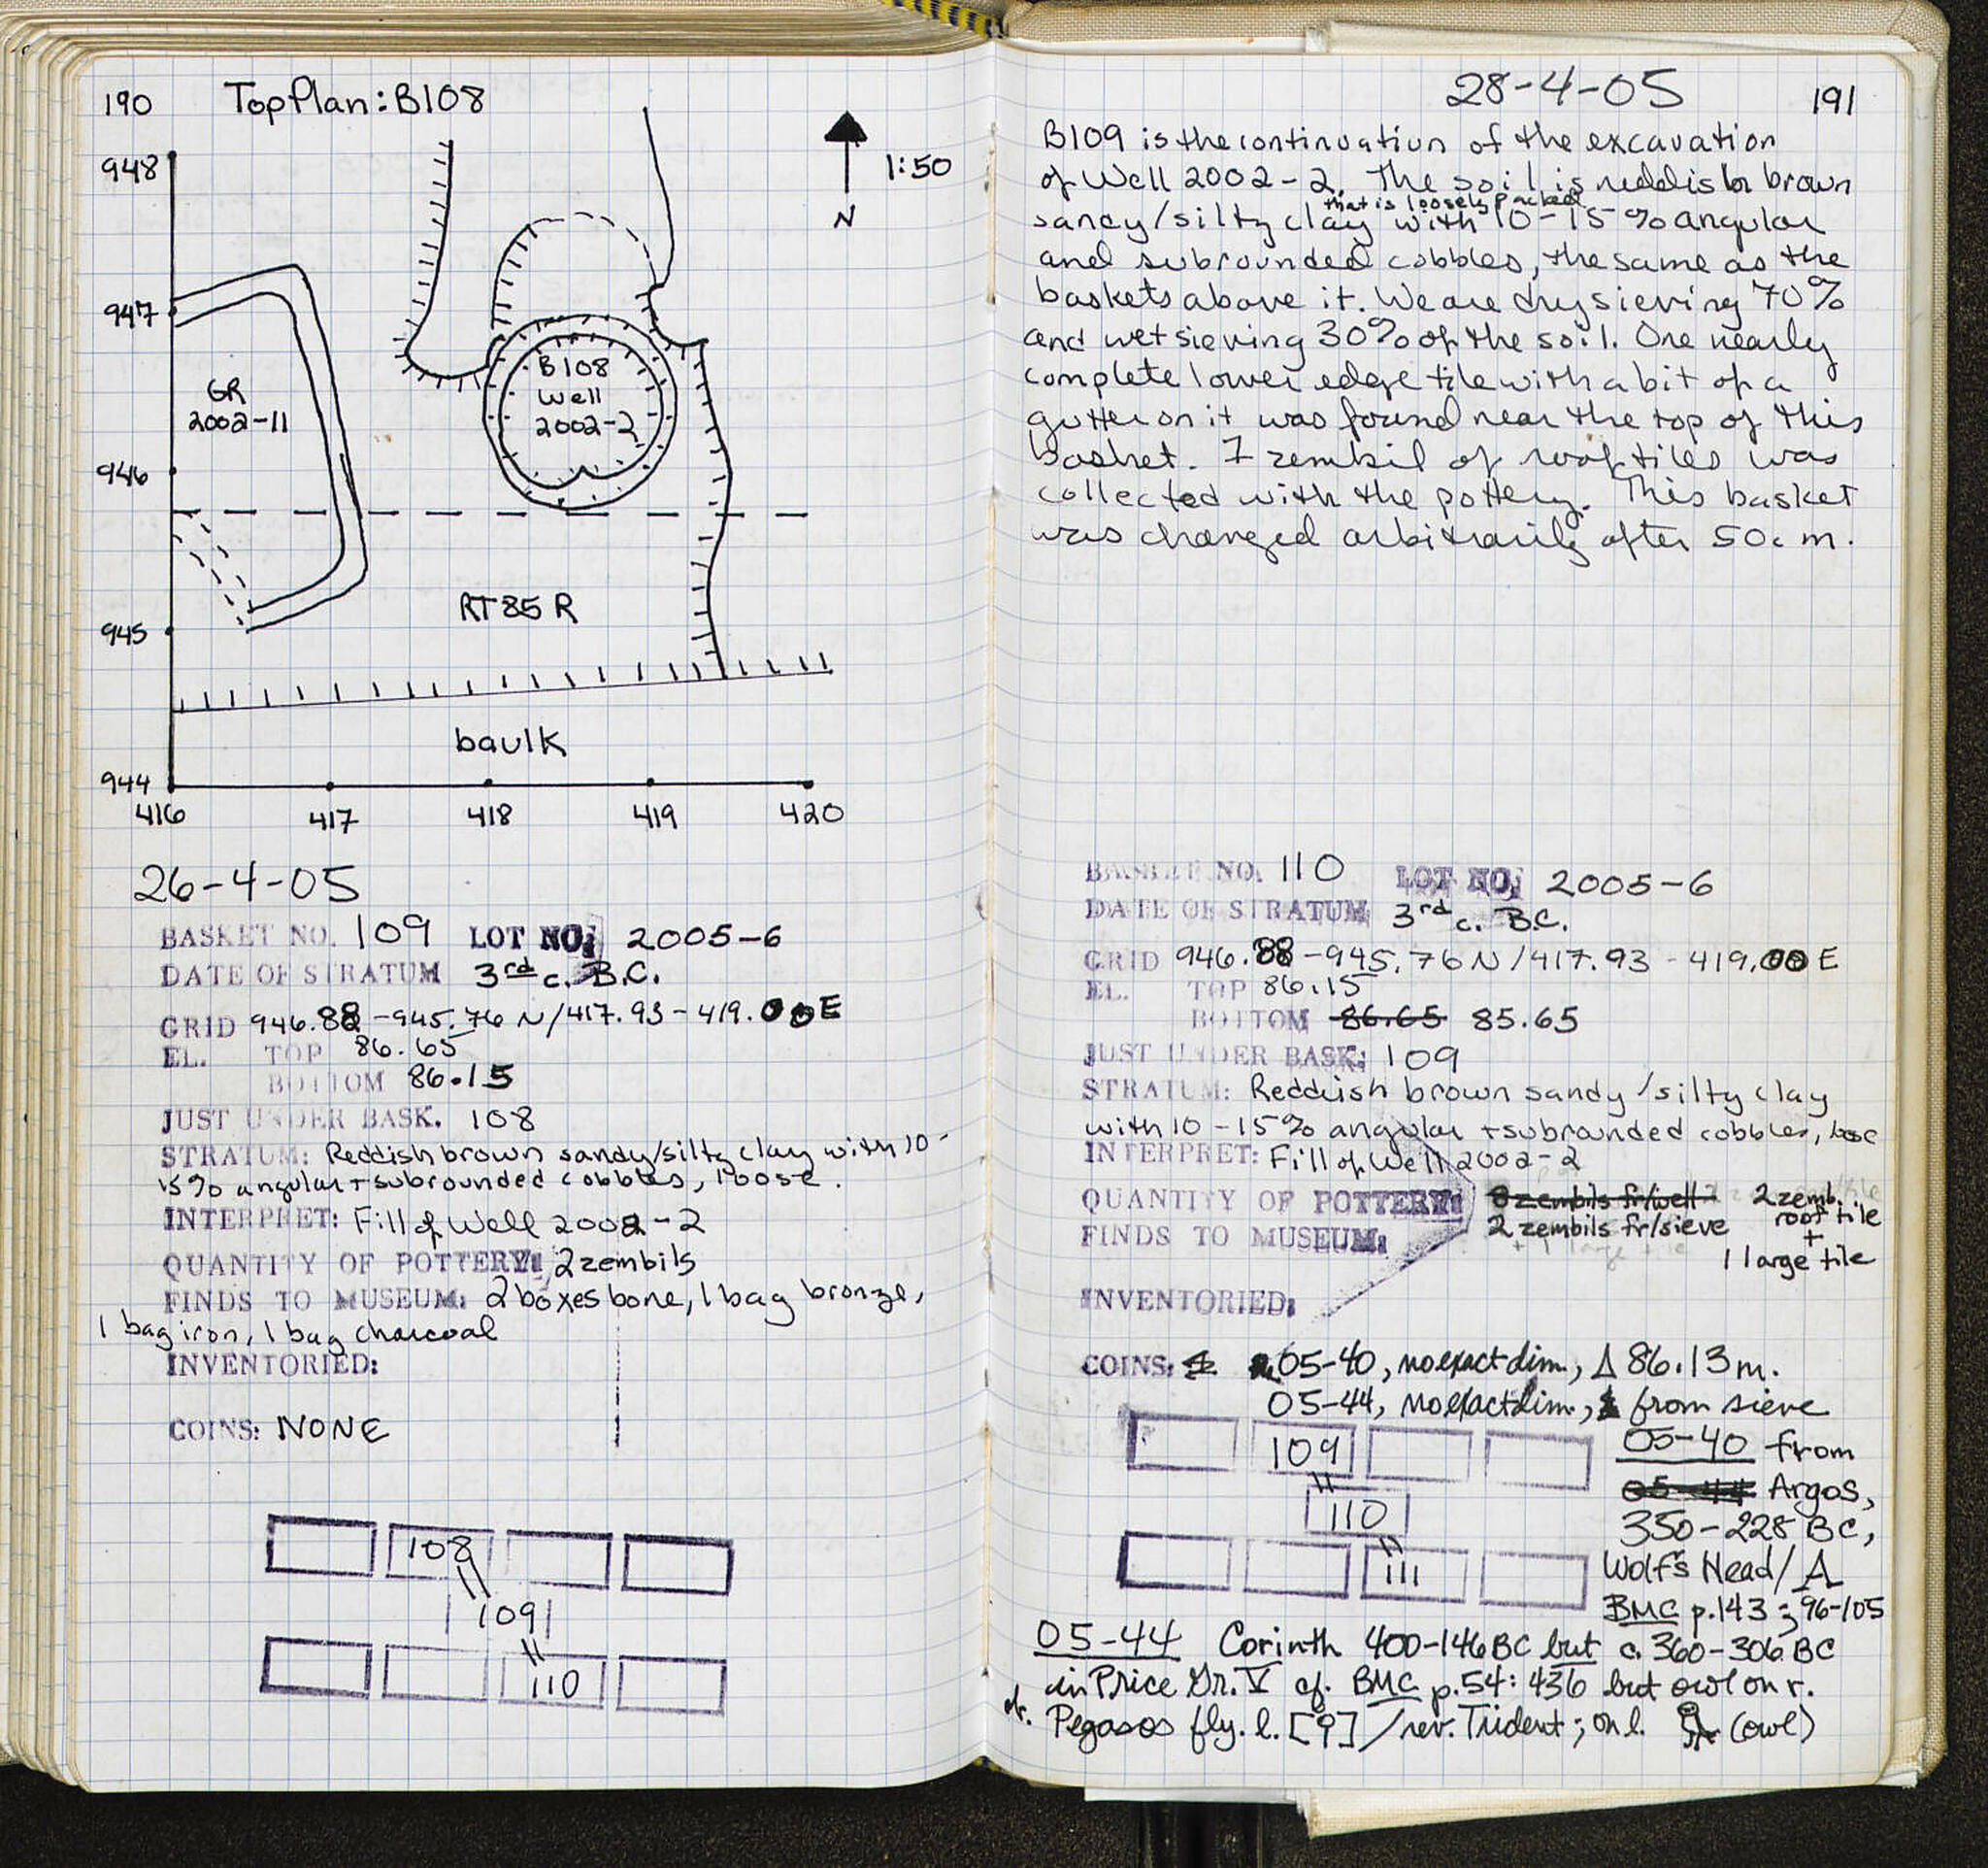 190 Top Plan: B108
948
1:50
N
947
B108
Well
2002-2
GR
2002-11
946
RT 85 R
945
baulk
944
416 417 418 419 420
26-4-05
BASKET NO. 109 LOT NO. 2005-6
DATE OF STRATUM 3rd c. B.C.
GRID 946.88-945.76 N/417.93-419.00 E
EL. TOP 86.65
BOTTOM 86.15
JUST UNDER BASK. 108
STRATUM: Reddish brown sandy/silty clay with 10-
15% angular + subrounded cobbles, loose.
INTERPRET: Fill of Well 2002-2
QUANTITY OF POTTERY: 2 zembils
FINDS TO MUSEUM: 2 boxes bone, 1 bag bronze,
1 bag iron, 1 bag charcoal
INVENTORIED:
COINS: NONE
108
109
110
28-4-05 191
B109 is the continuation of the excavation
of Well 2002-2. The soil is reddish brown
that is loosely packed
sandy/silty clay with 10-15% angular
and subrounded cobbles, the same as the
baskets above it. We are dry sieving 70%
and wet sieving 30% of the soil. One nearly
complete lower edge tile with a bit of a
gutter on it was found near the top of this
basket. 1 zembil of roof tiles was
collected with the pottery. This basket
was changed arbitrarily after 50cm.
BASKET NO. 110 LOT NO. 2005-6
DATE OF STRATUM 3rd c. B.C.
GRID 946.88-945.76 N/417.93-419.00 E
EL. TOP 86.15
BOTTOM 86.65 85.65
JUST UNDER BASK: 109
STRATUM: Reddish brown sandy/silty clay
with 10-15% angular + subrounded cobbles, loose
INTERPRET: Fill of Well 2002-2
QUANTITY OF POTTERY: 8 zembils fr/well 2 zemb.
roof tile
2 zembils fr/sieve
+
1 large tile
FINDS TO MUSEUM:
INVENTORIED:
COINS: 05-40, no exact dim., Δ 86.13m.
05-44, no exact dim., from sieve
109
110
111
05-40 from
05-44 Argos,
350-228 BC,
Wolf's Head/A
BMC p.143; 96-105
05-44 Corinth 400-146 BC but c. 360-306 BC
in Price Gr. V cf. BMC p.54: 436 but owl on r.
Pegasos fly. l. [ϙ]/rev. Trident; on l. (owl)